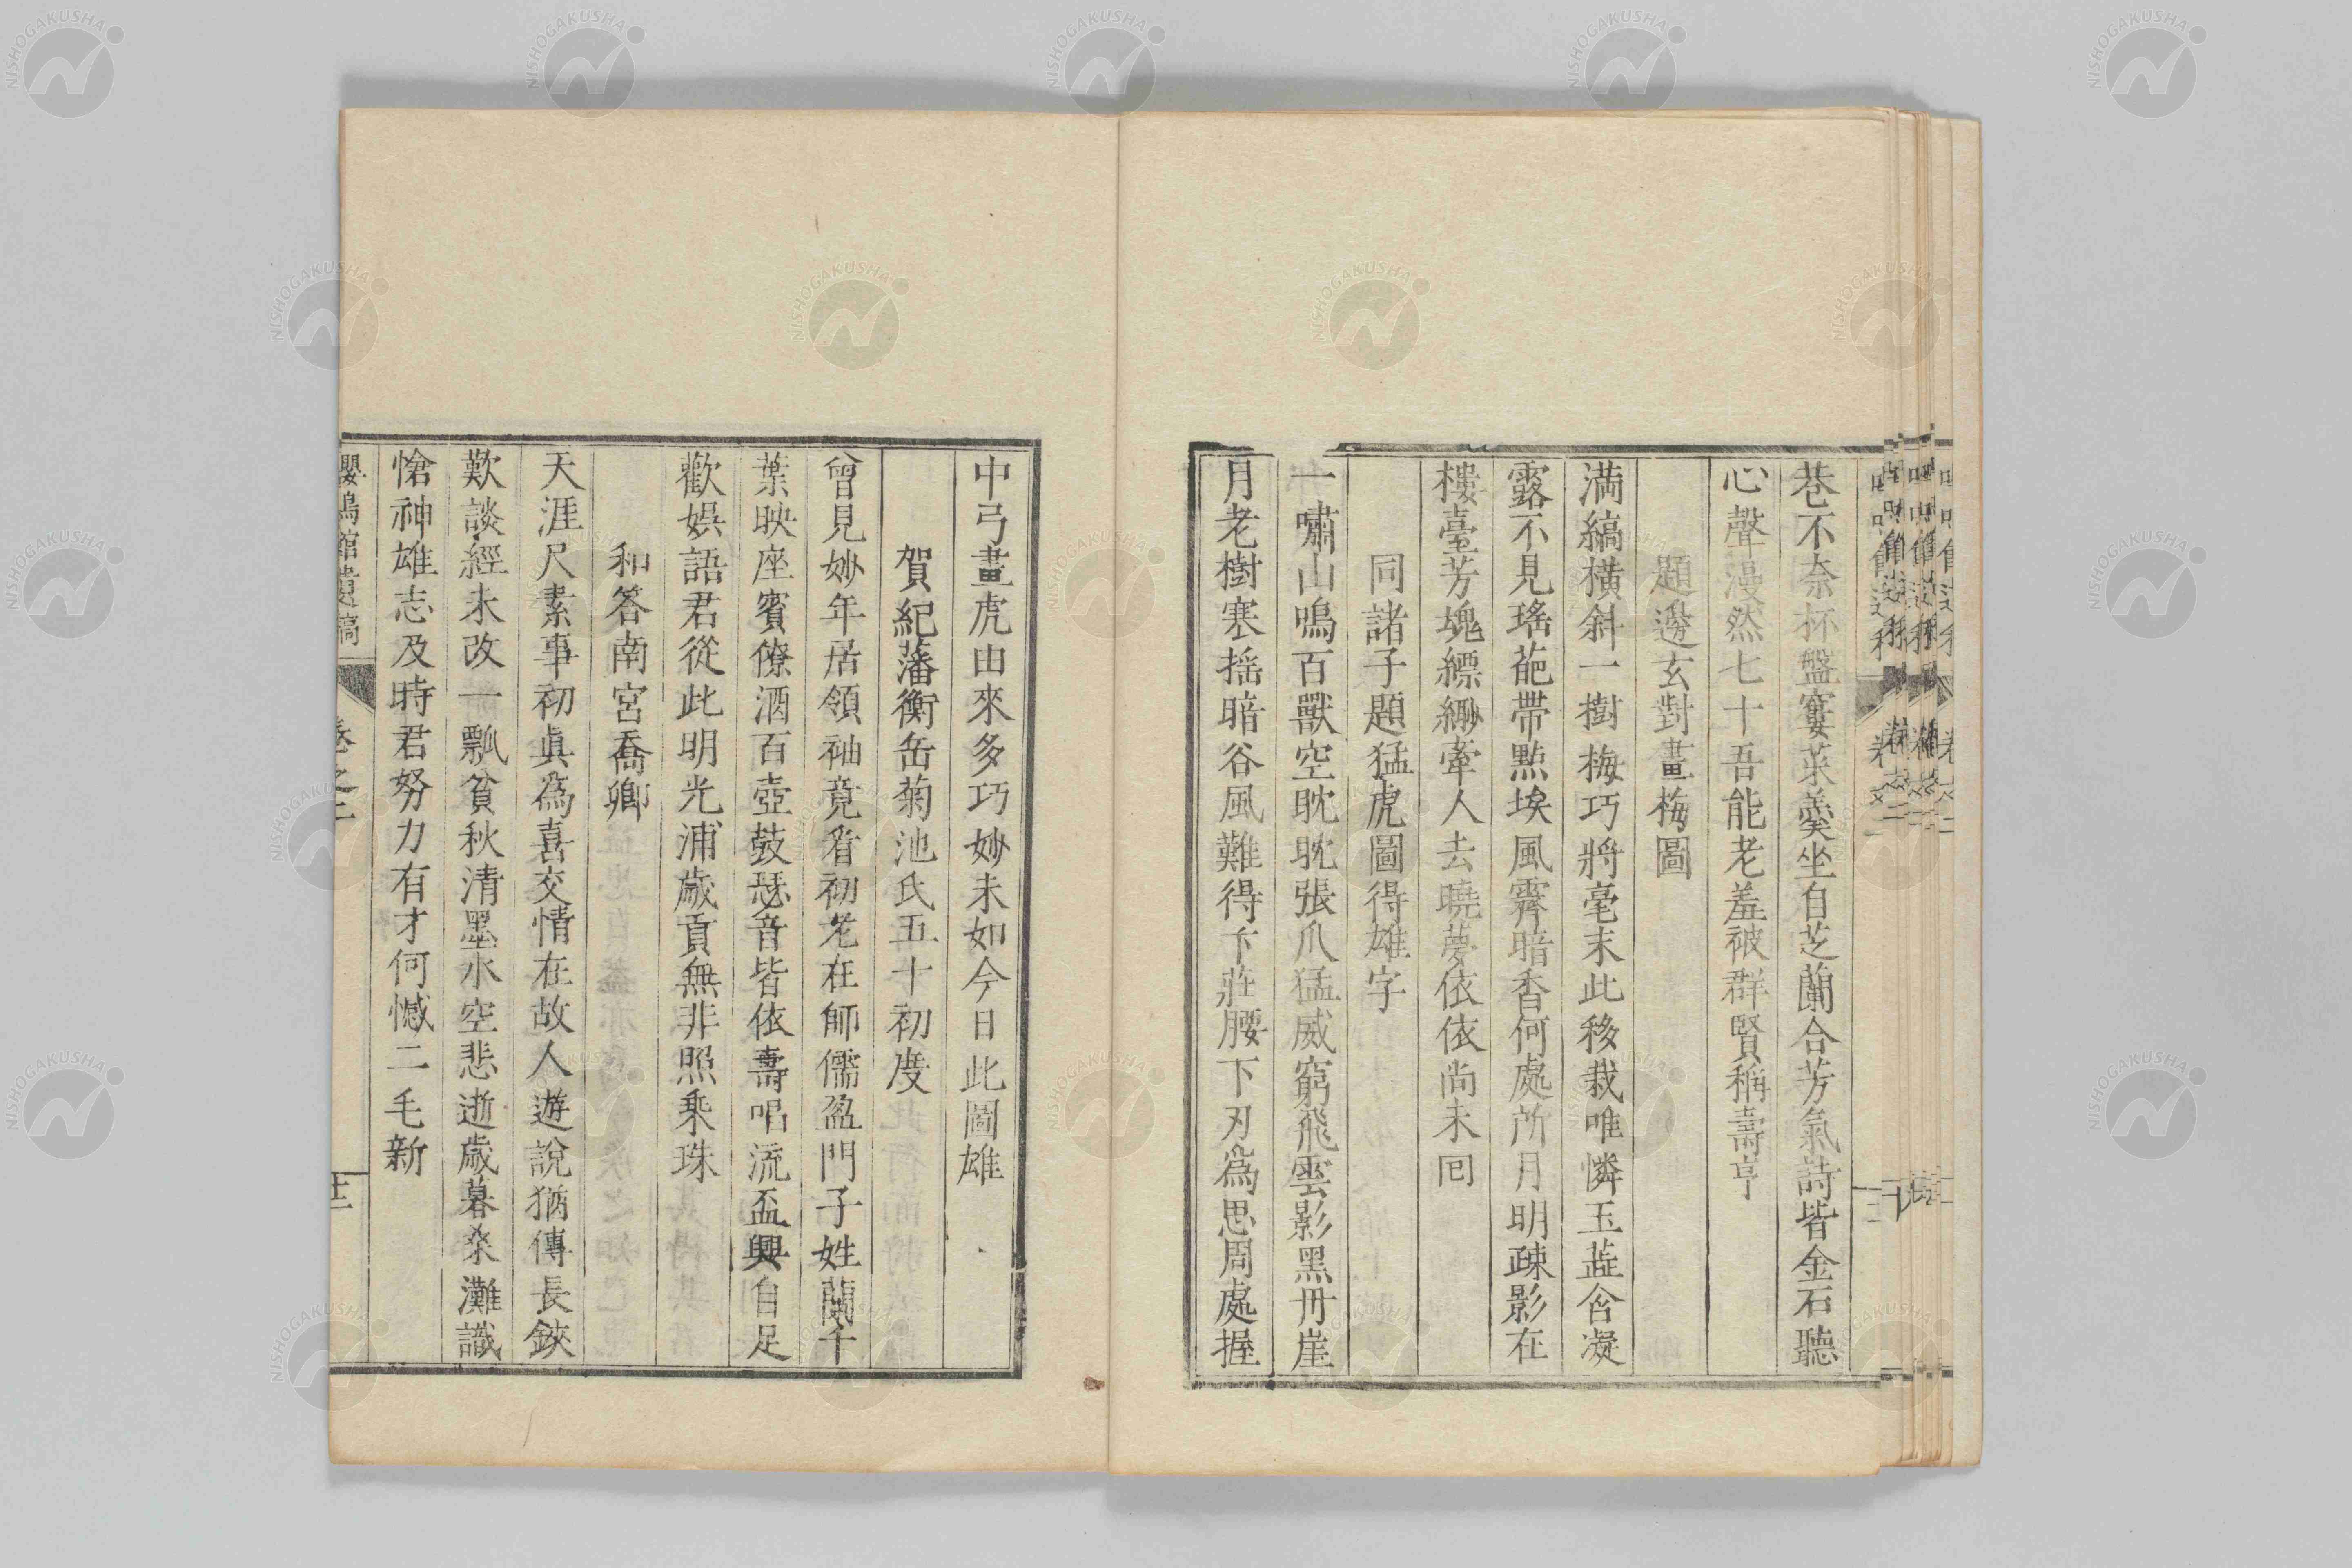 巷不奈杯盤寠菜羮坐自芝蘭合芳氣詩皆金石聽
心聲漫然七十吾能老羞被群賢稱壽亨
題邊玄對畫梅圖
満縞横斜一樹梅巧將毫末此移栽唯憐玉蕋含凝
露不見瑤葩帶點埃風霽暗香何處所月明疎影在
樓臺芳塊縹緲牽人去曉夢依依尚未囘
同諸子題猛虎圖得雄字
一嘯山鳴百獸空眈眈張爪猛威窮飛雲影黑丹崖
月老樹寒揺暗谷風難得卞莊腰下刃爲思周處握
中弓畫虎由來多巧妙未如今日此圖雄
賀紀藩衡岳菊池氏五十初度
曾見妙年居領袖竟看初老在師儒盈門子姓蘭千
葉映座賓僚酒百壺鼓瑟音皆依壽唱流盃興自足
歡娯語君從此明光浦歳貢無非照乘珠
和答南宮喬卿
天涯尺素事初眞爲喜交情在故人遊說猶傳長鋏
歎談經未改一瓢貧秋清墨水空悲逝歳暮桑灘識
愴神雄志及時君努力有才何憾二毛新
嚶鳴館遺稿 卷之二
NISHOGAKUSHA